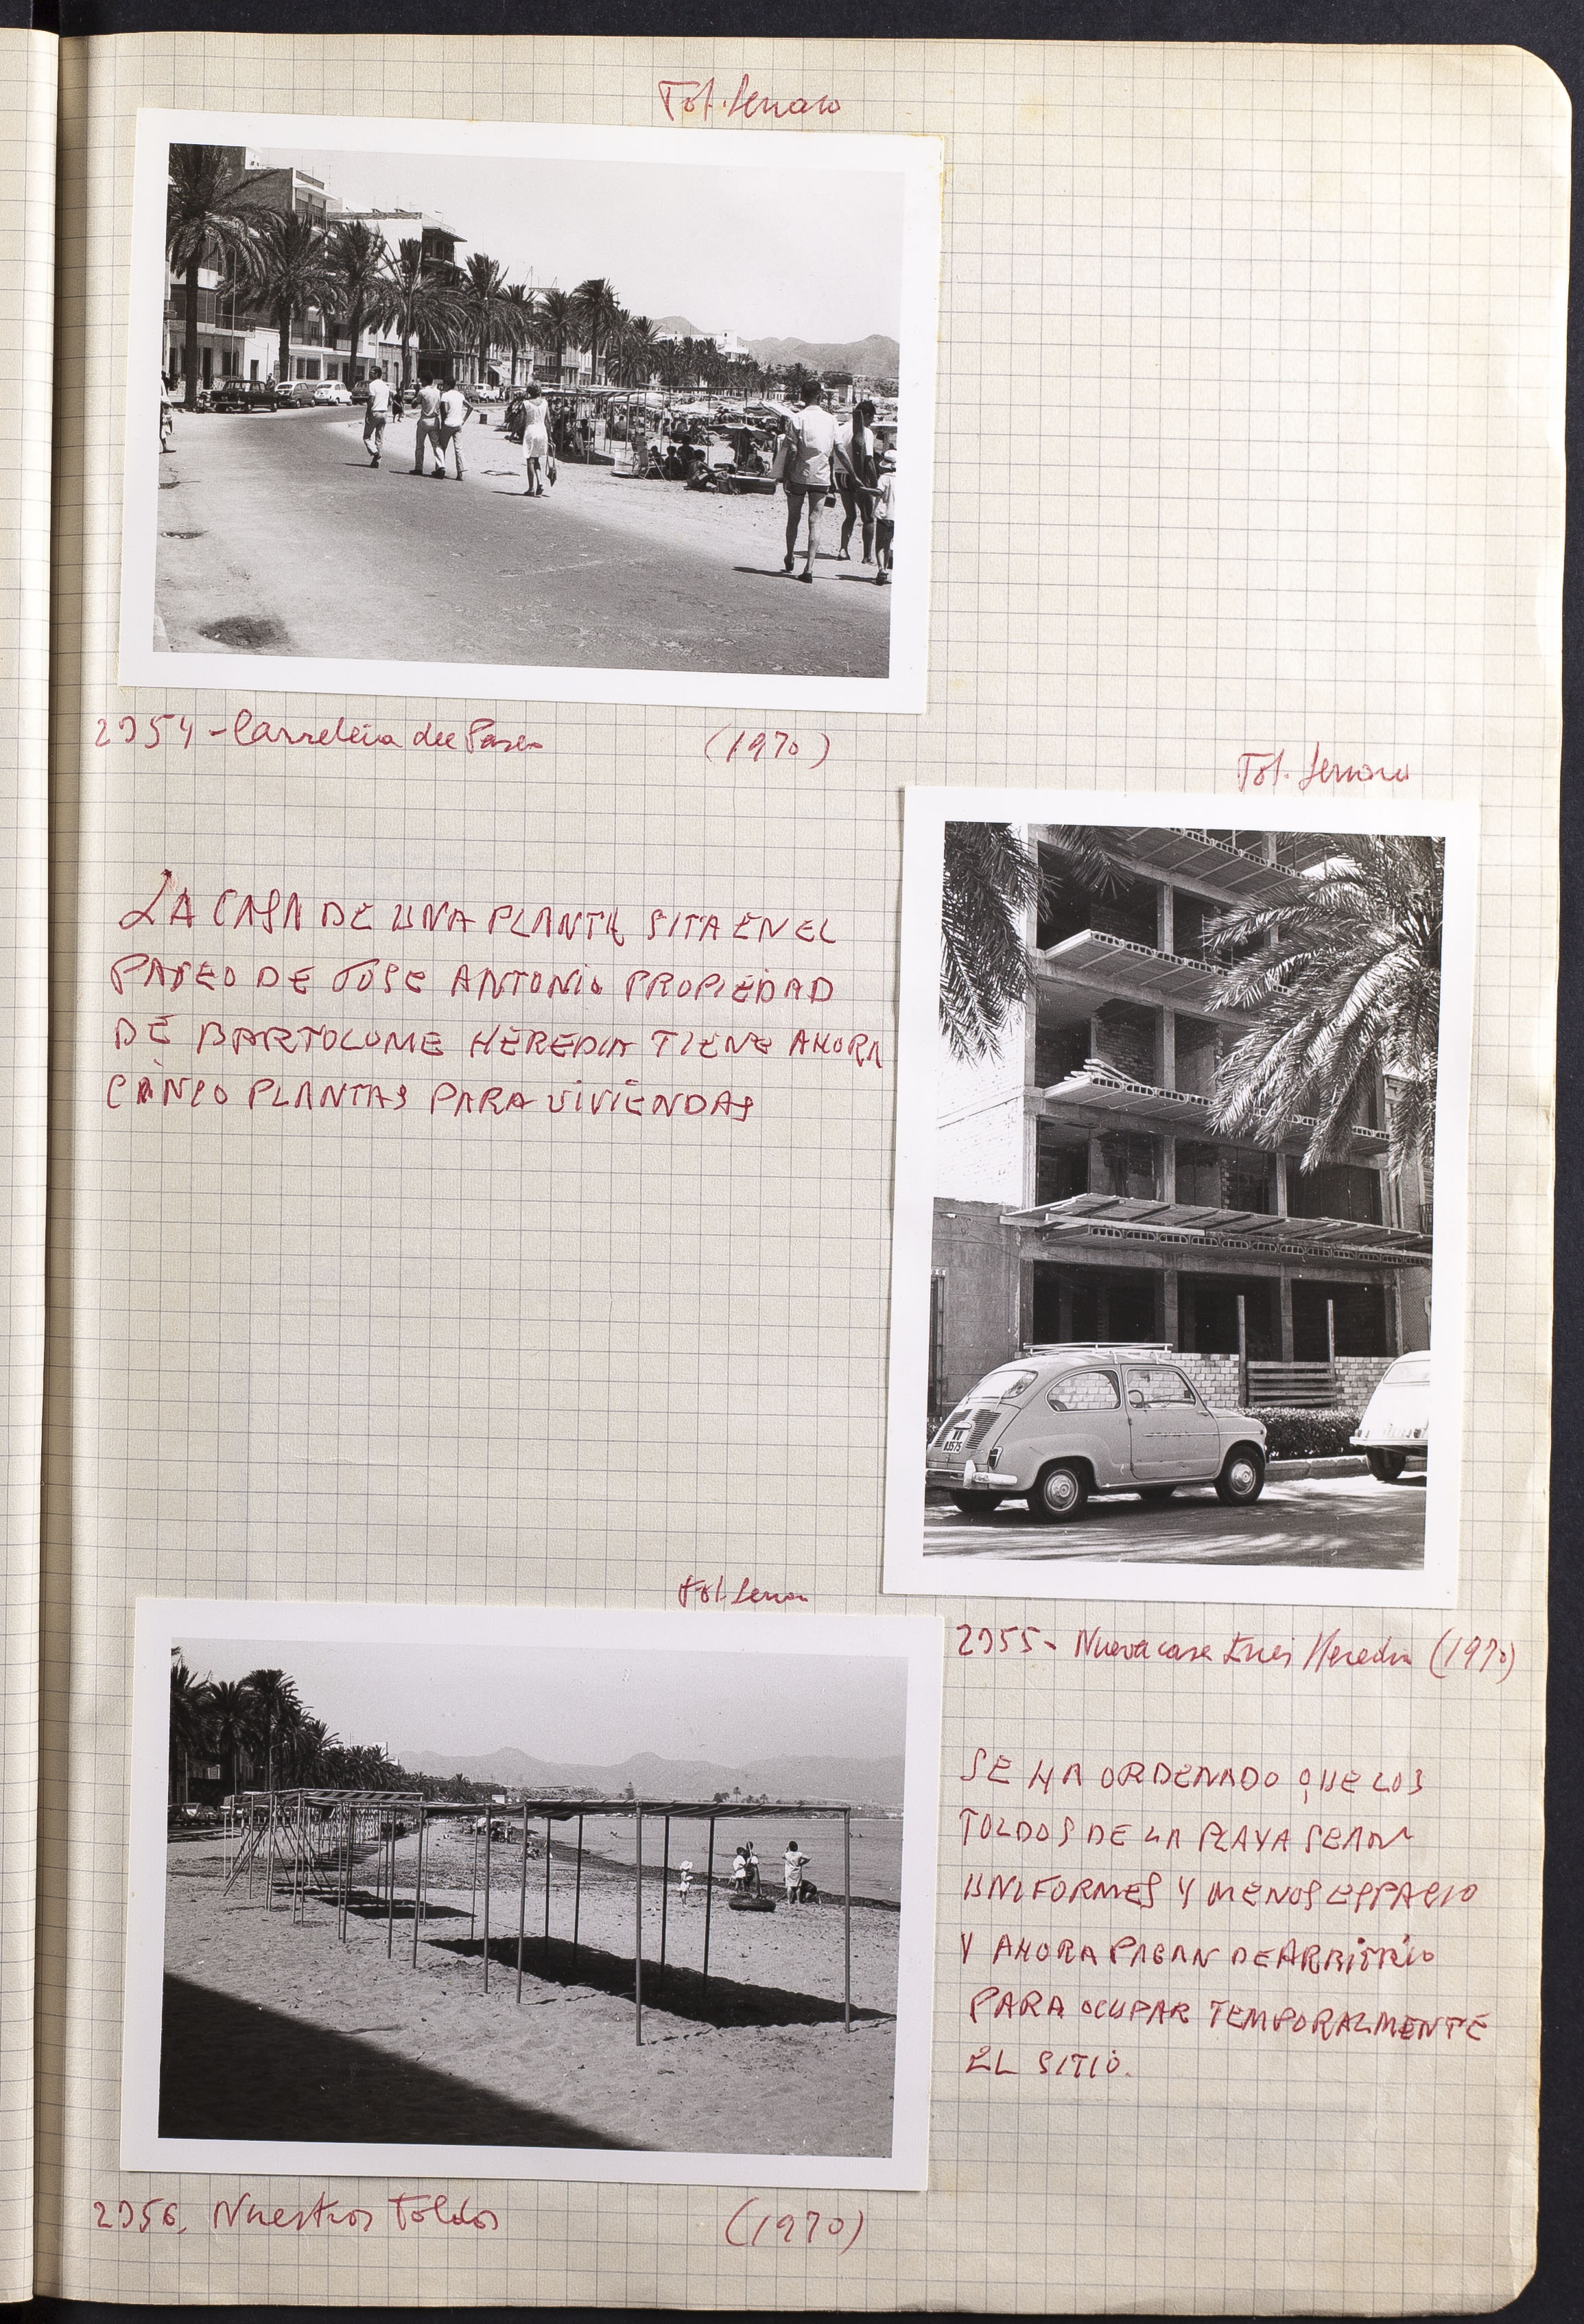 Fot. Serrano
2954 - Carretera del Paseo (1970)
Fot. Serrano
LA CASA DE UNA PLANTA SITA EN EL
PASEO DE JOSE ANTONIO PROPIEDAD
DE BARTOLOME HEREDIA TIENE AHORA
CINCO PLANTAS PARA VIVIENDAS
Fot. Serrano
2955 - Nueva casa Heredia (1970)
SE HA ORDENADO QUE LOS
TOLDOS DE LA PLAYA SEAN
UNIFORMES Y MENOS ESPACIO
Y AHORA PAGAN DE ARBITRIO
PARA OCUPAR TEMPORALMENTE
EL SITIO.
2956. Nuestros Toldos (1970)